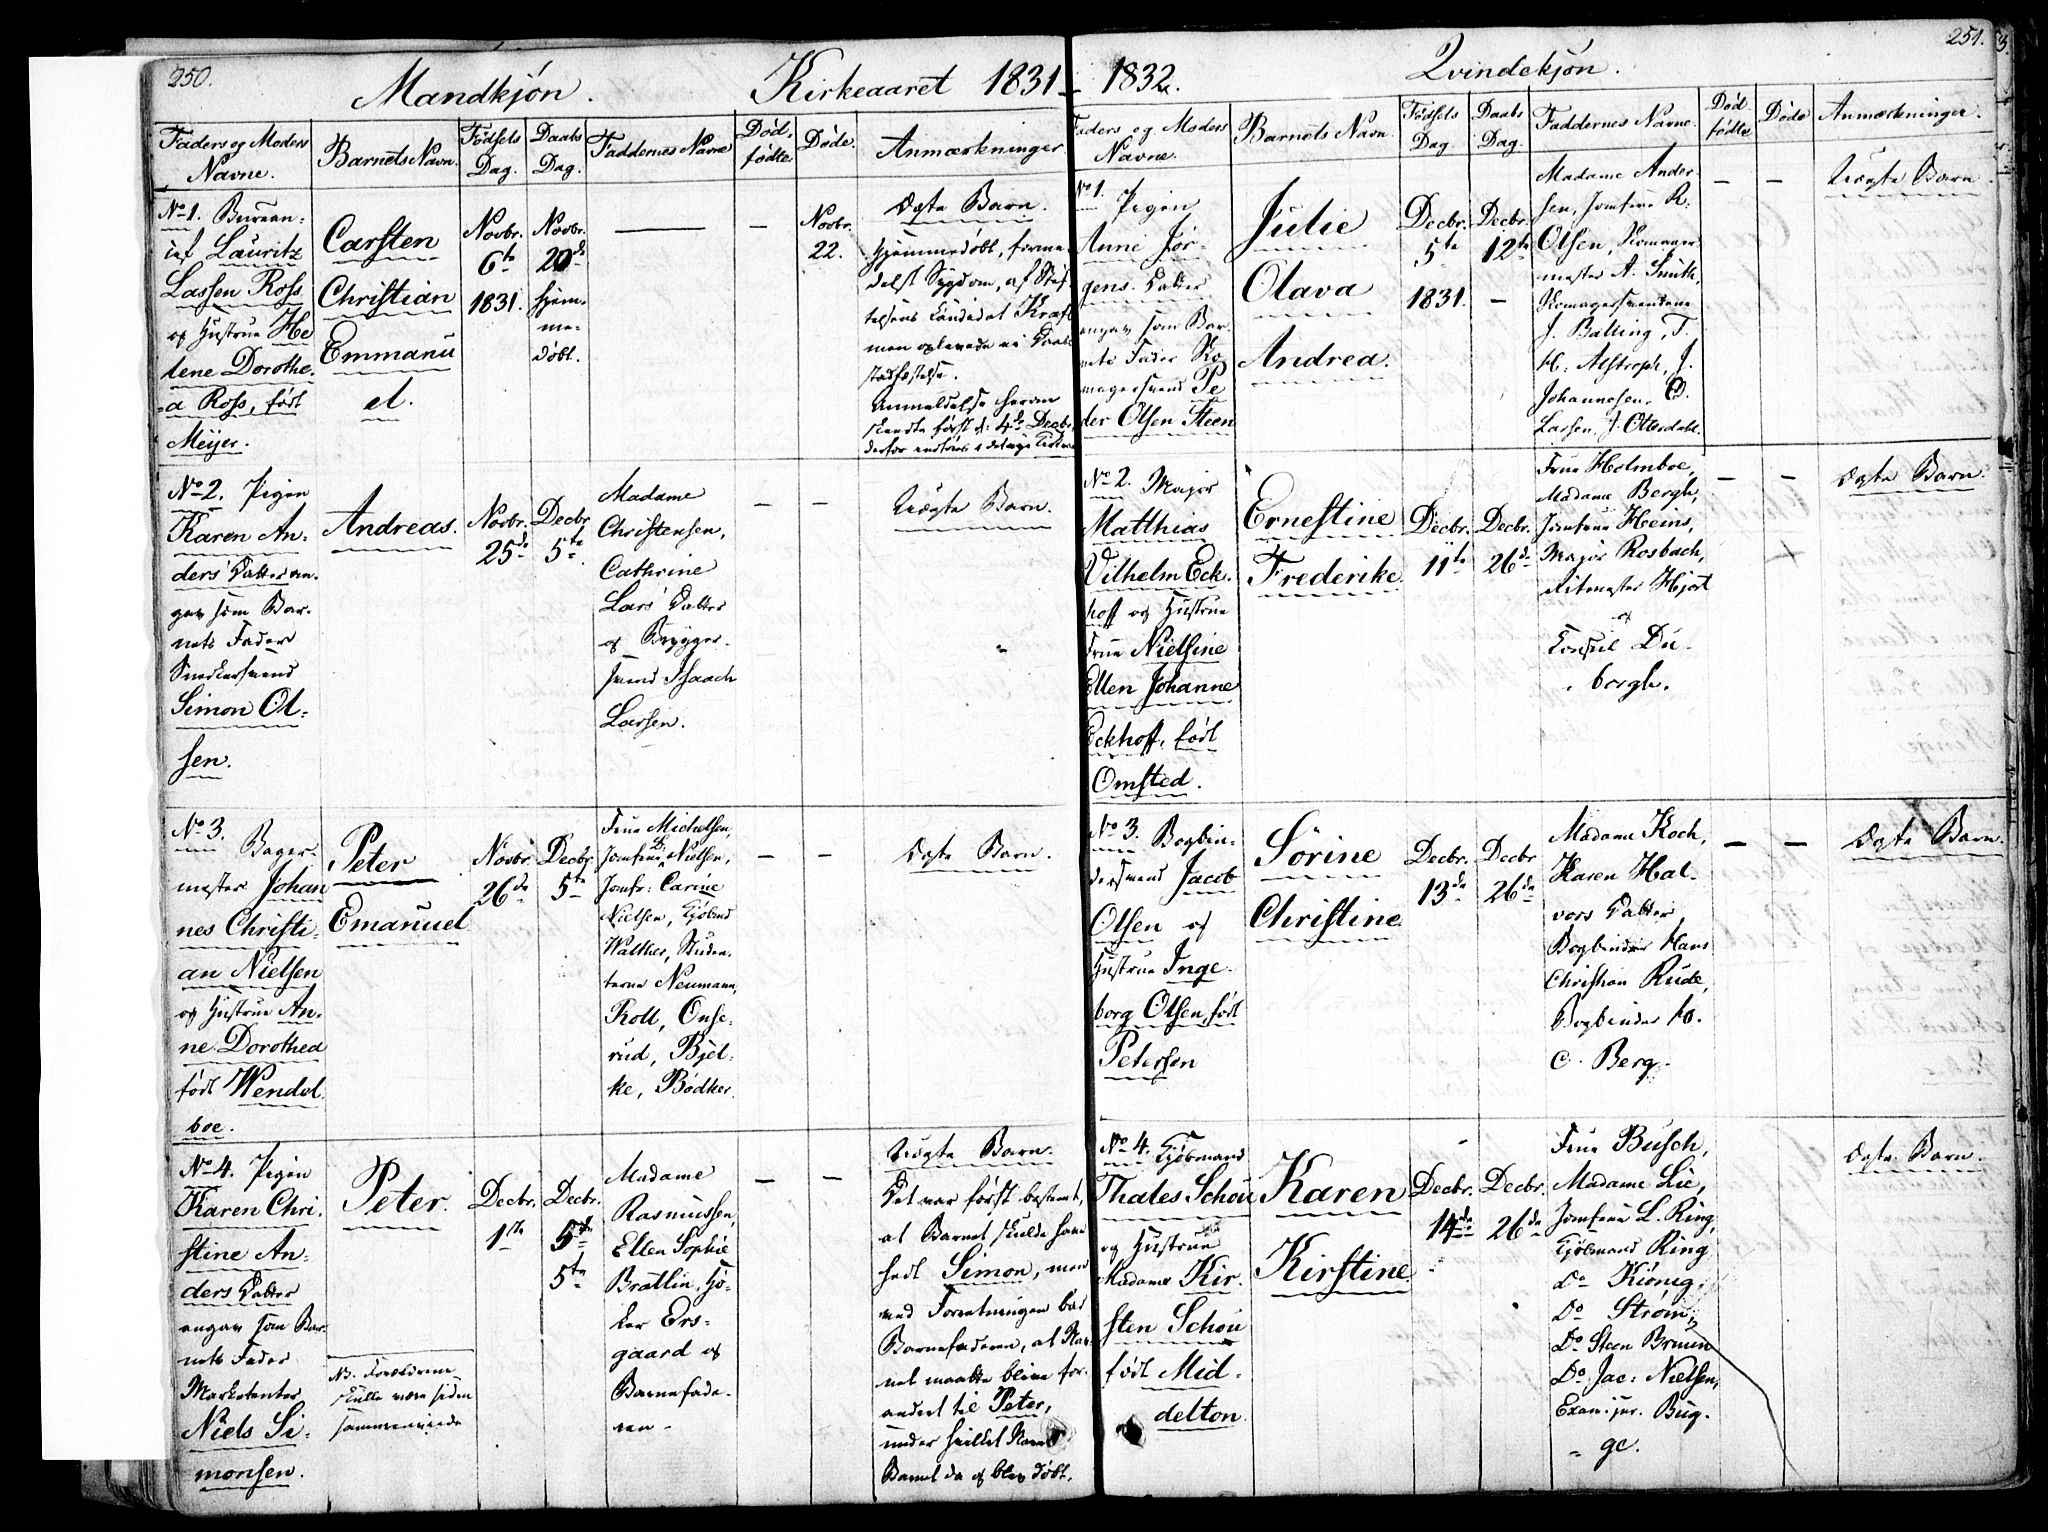 250.
Mandkjøn.
Kirkeaaret 1831-
Faders og Moders
Navne.
Barnets Navn.
Fødsels
Dag.
Daabs
Dag.
Faddernes Navne
Død-
fødte.
Døde.
Anmærkninger.
No 1. Bureau-
chef Lauritz
Lassen Ross
og Hustrue He
lene Dorothe-
a Ross, født
Meijer.
Carsten
Christian
Emmanu
el.
Novbr.
6te
1831.
Novbr.
20de
hjem-
me-
døbt.
— —
Novbr.
22.
Ægte Barn.
Hjemmedøbt, forme-
delst Sygdom, af Stif
telsens Candidat Kraft
men oplevede ei Daabs
stadfæstelse.
Anmeldelse herom
skeedte først d: 4de Decbr,
derfor
No 2. Pigen
Karen An-
ders Datter an-
gav som Bar-
nets Fader
Snedkersvend
Simon Ol-
sen.
Andreas.
Novbr.
25de
Decbr
5te
Madame
Christensen,
Cathrine
Lars' Datter
og Brygger-
svend Isaach
Larsen.
— —
Uægte Barn.
No 3. Bager-
mester Johan
nes Christi-
an Nielsen
og Hustrue An-
ne Dorothea
født Wendel
boe.
Peter
Emanuel
Novbr.
26de
Decbr
5te
Frue Michelsen,
Jomfrue L. Nielsen,
Jomfr: Carine
Nielsen, Kjøbmd
Walther, Studen-
terne Neumann,
Roll, Onse-
rud, Bjel-
ke, Bødker.
— —
Ægte Barn.
No 4. Pigen
Karen Chri-
stine An-
ders Datter
angav som Bar-
nets Fader
Marketenter
Niels Si-
monsen.
Peter.
NB. Forældrene
skulle være siden
sammenviede
Decbr.
1ste
Decbr.
5te
Madame
Rasmussen,
Ellen Sophie
Bratlin, Hø-
ker Ers-
gaard og
Barnefade-
ren.
— —
Uægte Barn.
Det var først bestemt,
at Barnet skulde have
hedt Simon, men
ved Forretningen bad
Barnefaderen, at Nav-
net maatte blive for-
andret til Peter,
under hvilket Navn
Barnet da og blev døbt.
251.
1832.
Qvindekjøn.
Faders og Moders
Navne.
Barnets Navn.
Fødsels
Dag.
Daabs
Dag.
Faddernes Navne.
Død-
fødte
Døde
Anmærkninger.
No 1. Pigen
Anne Jør-
gens Datter
angav som Bar-
nets Fader Sko
magersvend Pe
der Olsen Steen
Julie
Olava
Andrea.
Decbr.
5te
1831.
Decbr.
12te
—
Madame Ander-
sen, Jomfrue R.
Olsen, Skomager-
mester A. Smith,
Skomagersvendene
J. Balling, T.
H. Alstroph, J.
Johannesen, O.
Larsen, J. Otterdahl.
— —
Uægte Barn
No 2. Major
Matthias
Vilhelm Eck-
hoff og Hustrue
Frue Nielsine
Ellen Johanne
Eckhoff, født
Omsted.
Ernestine
Frederike
Decbr.
11te
Decbr.
26de
Frue Holmboe,
Madame Bergh,
Jomfrue Heins,
Major Rosbach,
Ritmester Hjort
og
Consul Du-
borgh.
— —
Ægte Barn.
No 3. Bogbin-
dersvend Jacob
Olsen og
Hustrue Inge-
borg Olsen, født
Petersen
Sørine
Christine
Decbr.
13de
Decbr
26de
Madame Koch,
Karen Hal-
vors Datter,
Bogbinder Hans
Christian Rude,
Bogbinder
C. Berg.
— —
Ægte Barn.
No 4. Kjøbmand
Thales Schou
og Hustrue
Madame Kir-
sten Schou
født Mid-
delton.
Karen
Kirstine
Decbr.
14de
Decbr.
26de
Frue Busch,
Madame Lie,
Jomfrue L. Ring,
Kjøbmand Ring
Do Kiønig,
Do Strøm,
Do Steen Bruun
Do Jac: Nielsen,
Exam: jur. Bug-
ge.
Ægte Barn.